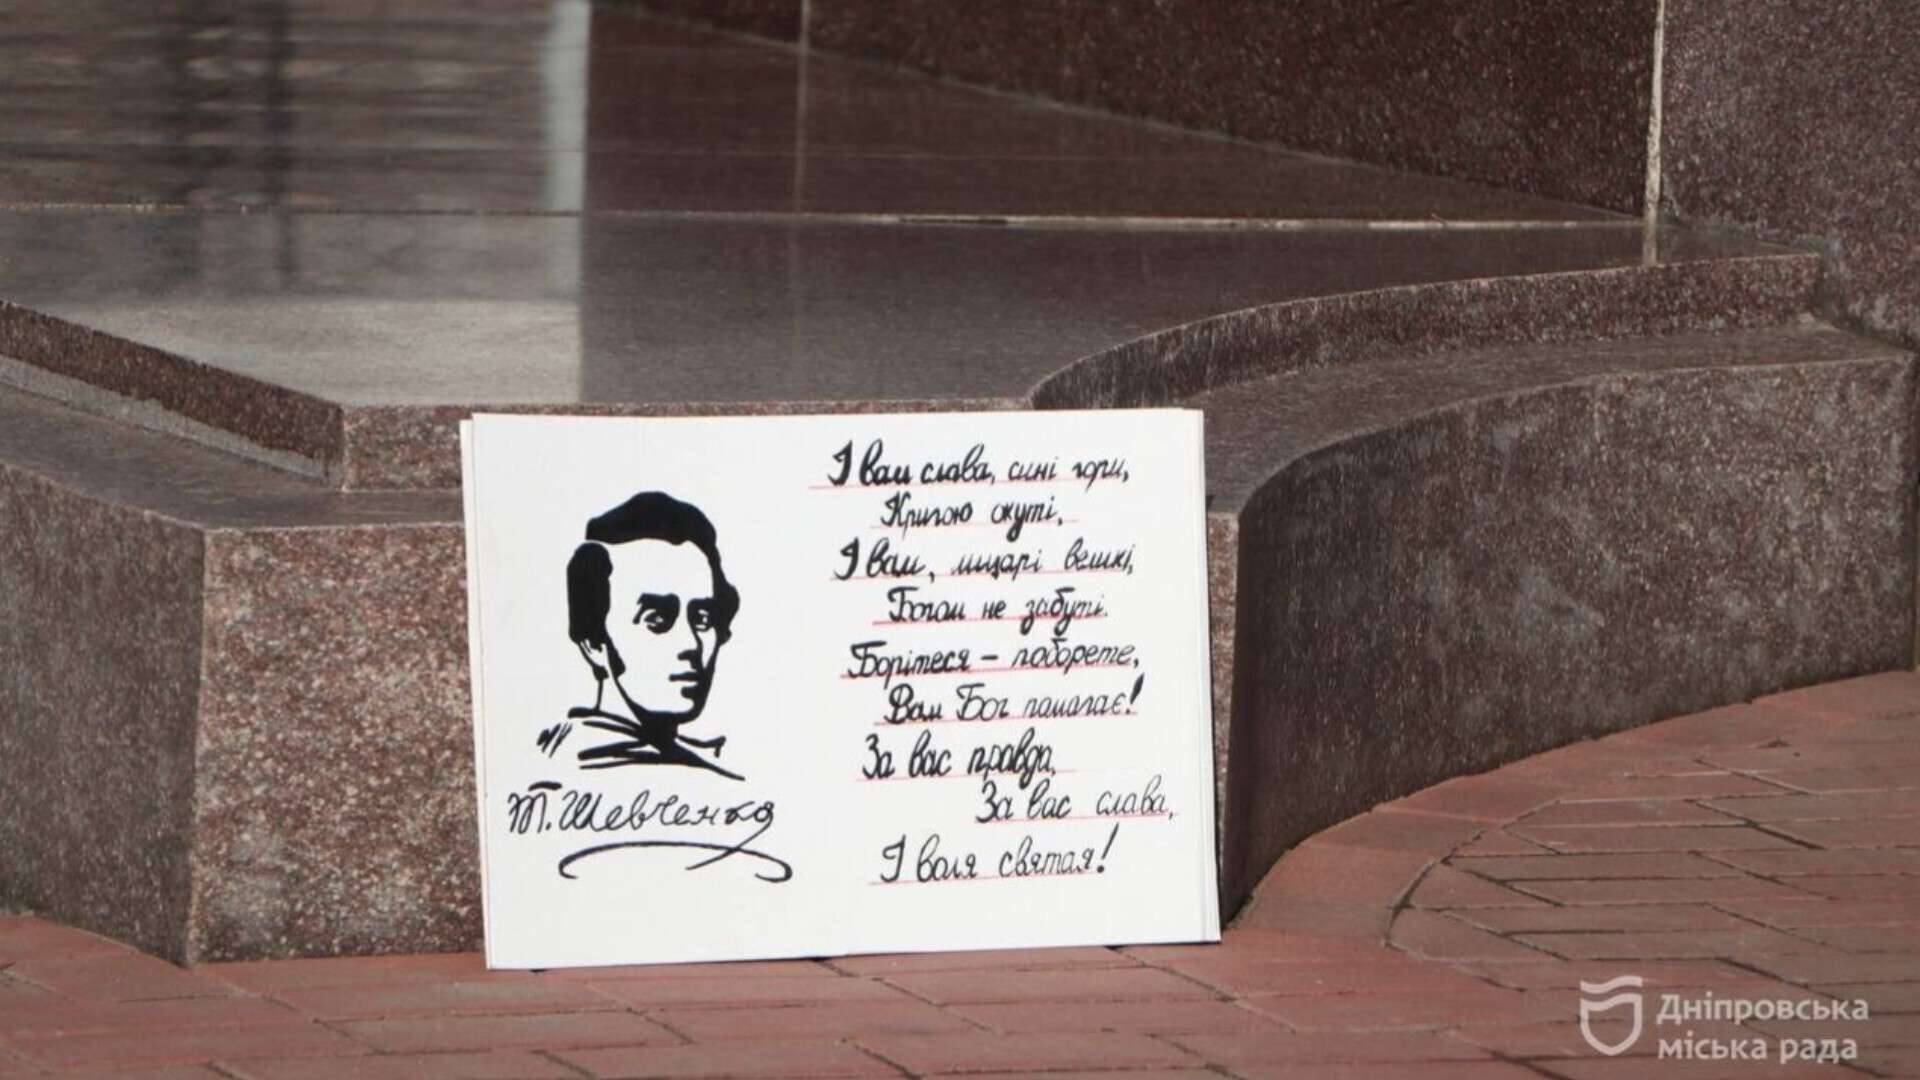 І вам слава, сині гори,
Кригою окуті,
І вам, лицарі великі,
Богом не забуті.
Борітеся – поборете,
Вам Бог помагає!
За вас правда,
За вас слава,
І воля святая!
Т. Шевченко
Дніпровська
міська рада